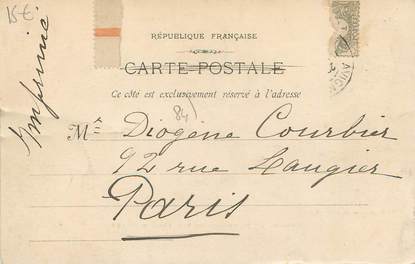 15€
Imprimé
RÉPUBLIQUE FRANÇAISE
CARTE POSTALE
Ce côté est exclusivement réservé à l'adresse
84
M Diogène Courbier
92 rue Laugier
Paris
AVIGN